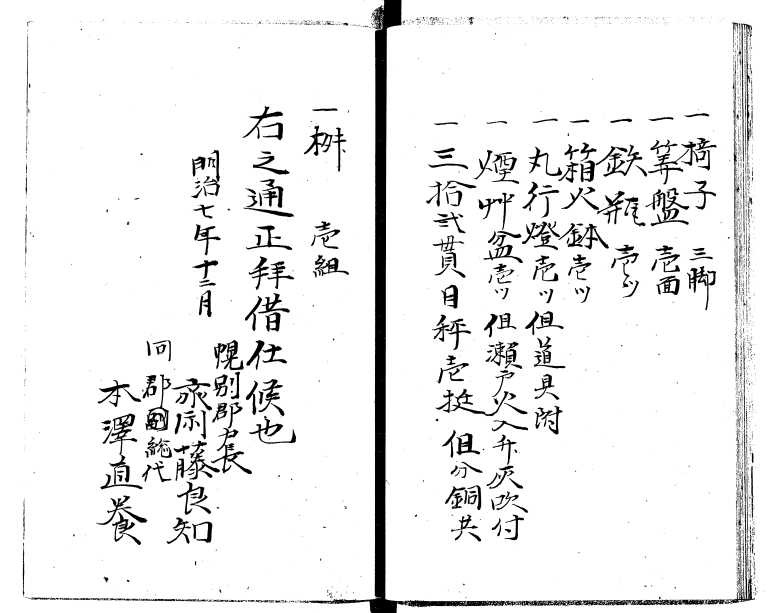 一 椅子 三脚
一 算盤 壱面
一 鉄瓶 壱ツ
一 箱火鉢 壱ツ
一 丸行燈 壱ツ 但道具附
一 煙艸盆 壱ツ 但瀬戸火入并灰吹付
一 三拾弐貫目秤 壱挺 但分銅共
一 桝 壱組
右之通正拝借仕候也
明治七年十二月
幌別郡戸長
斎藤良知
同郡 総代
本澤直養